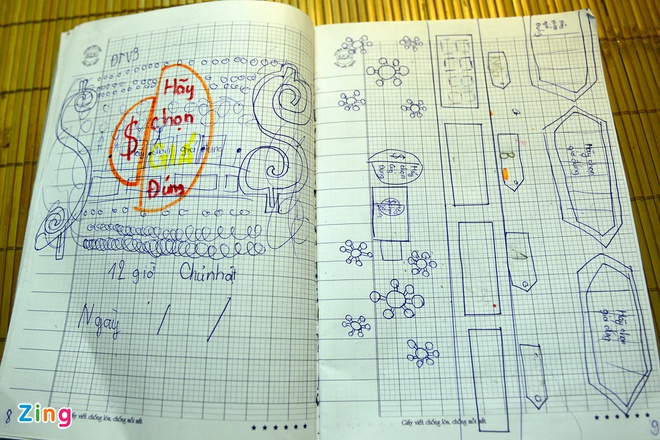 ĐTVB
Hãy
chọn
GIÁ
Đúng
$
12 giờ Chủ nhật
Ngày / /
8
Zing
Giấy viết chống lóa, chống mỏi mắt.
Hãy chọn
giá đúng
Hãy chọn
giá đúng
Hãy chọn
Giá
Đúng
B
1
Giấy viết chống lóa, chống mỏi mắt.
9